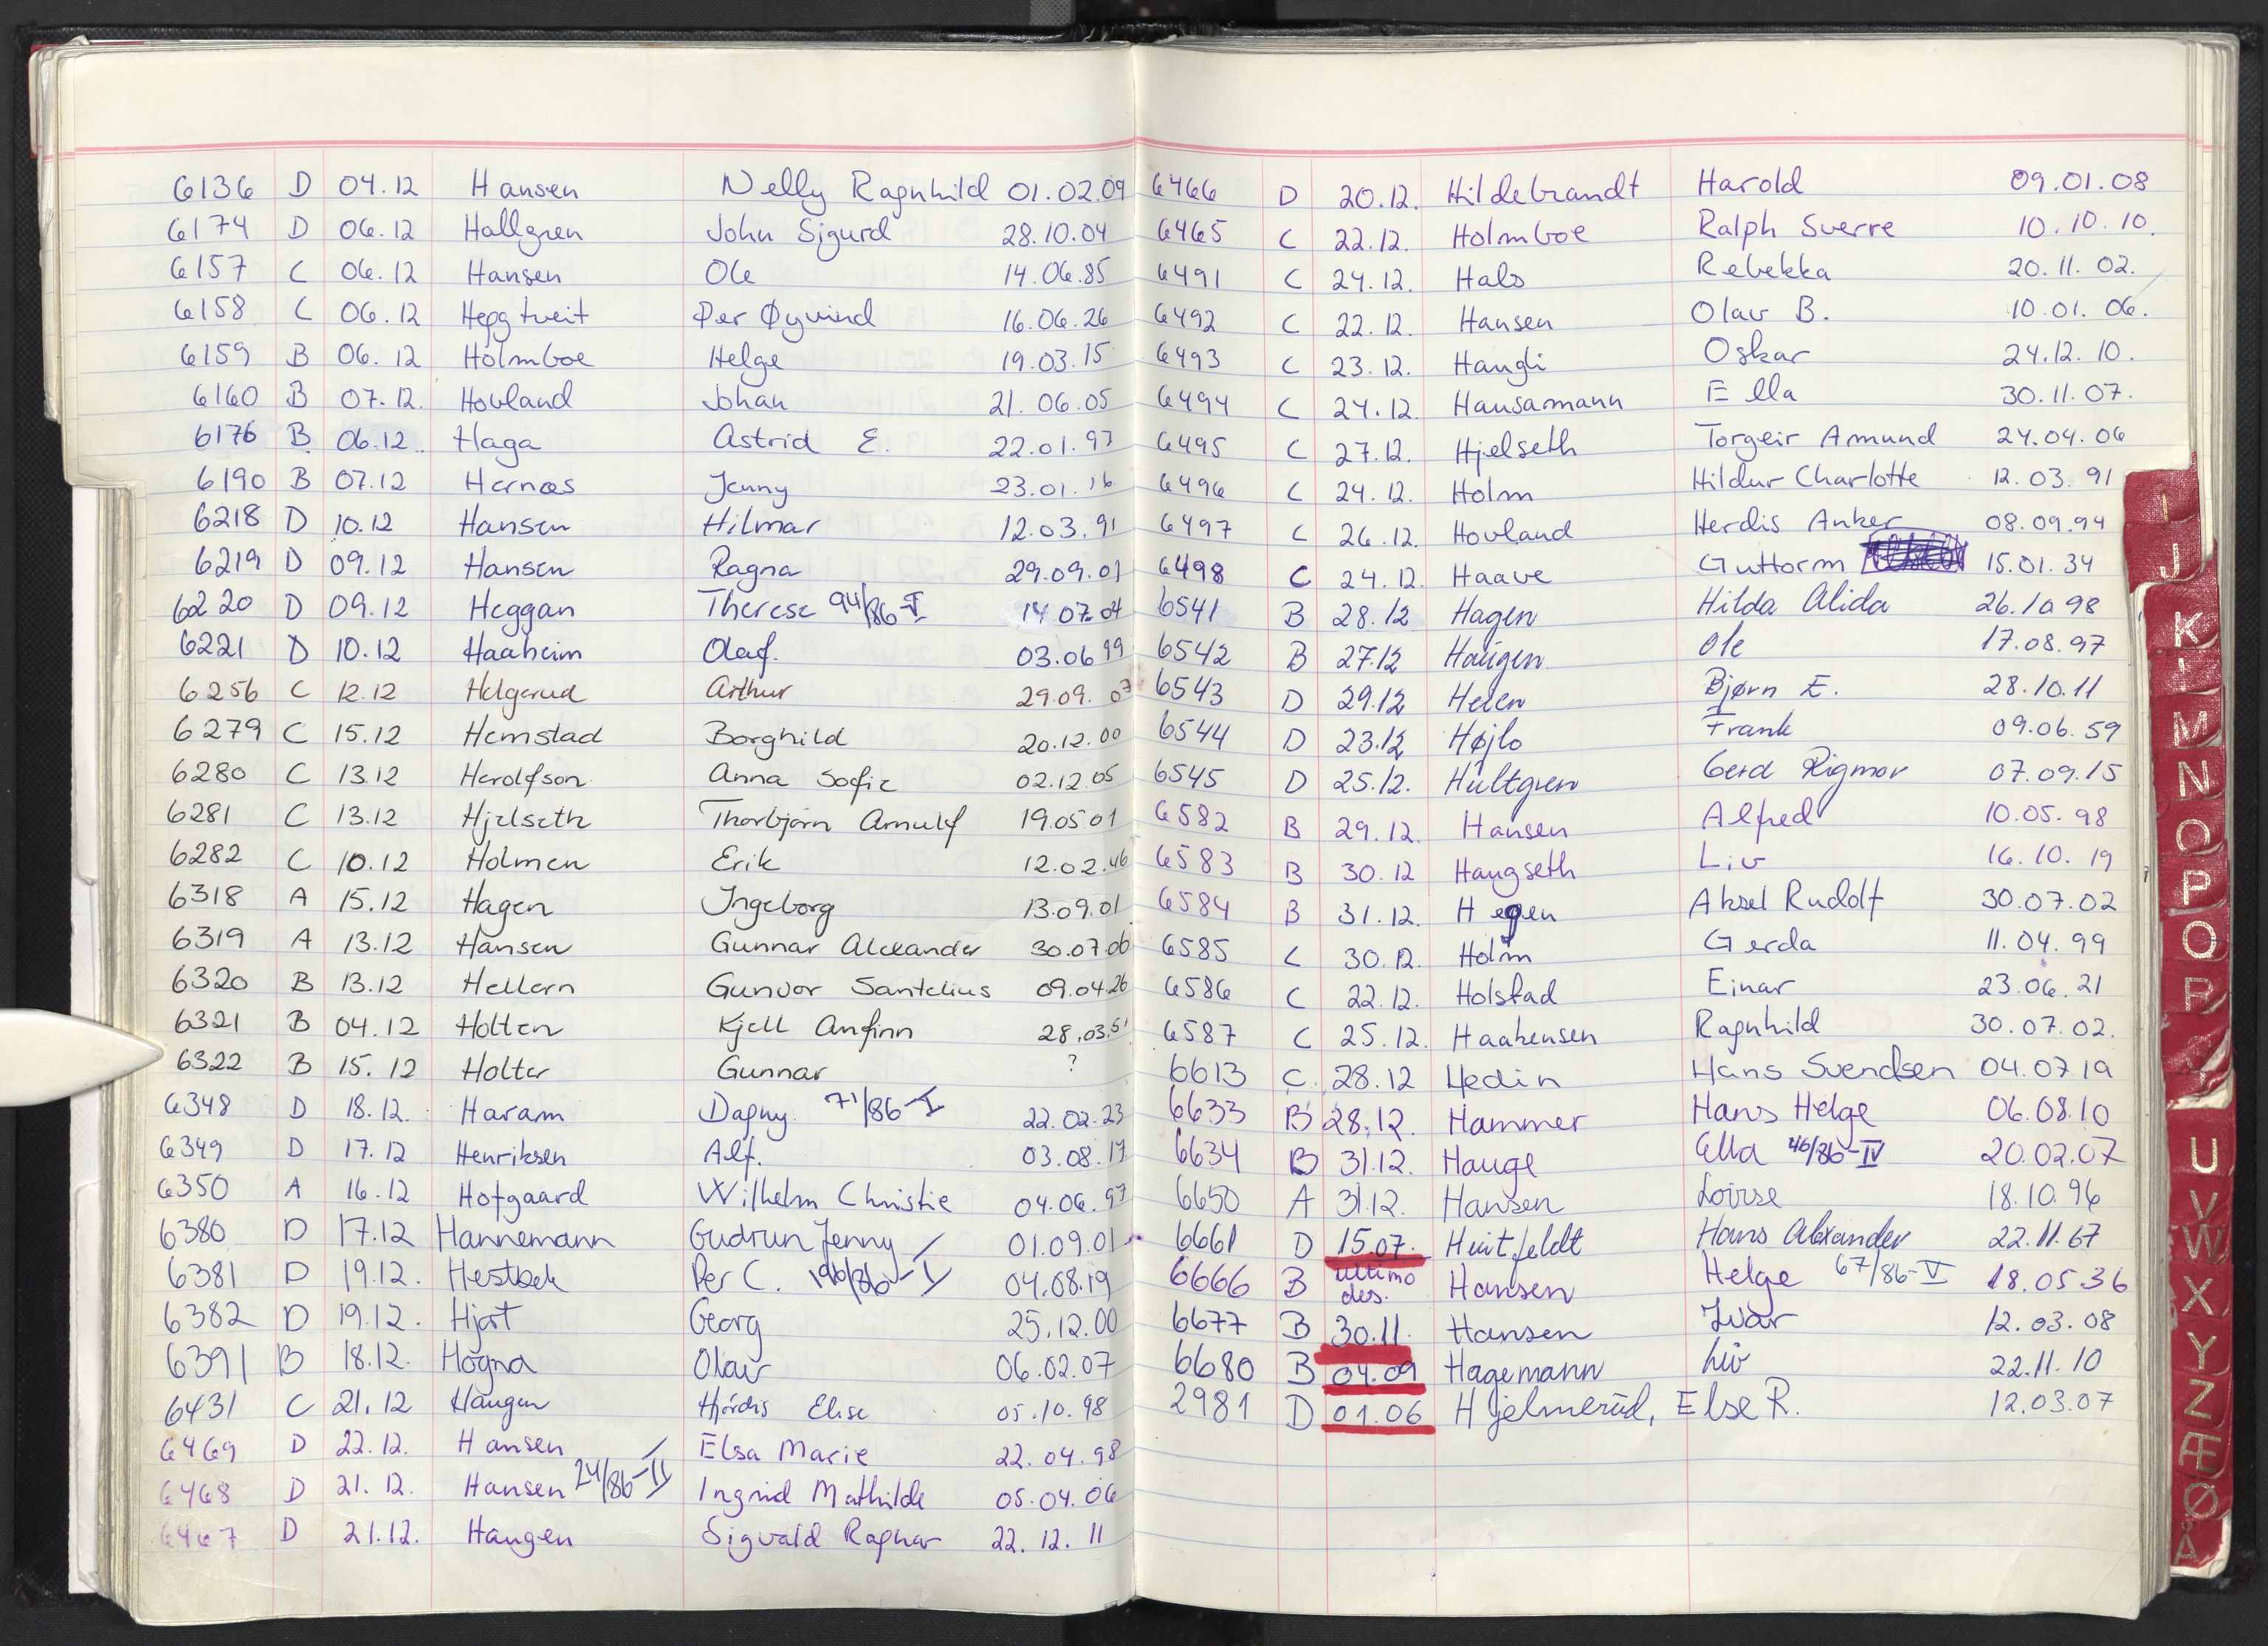 6136 D 04.12 Hansen Nelly Ragnhild 01.02.09
6174 D 06.12 Hallgren John Sigurd 28.10.04
6157 C 06.12 Hansen Ole 14.06.85
6158 C 06.12 Hegg tveit Per Øyvind 16.06.26
6159 B 06.12 Holmboe Helge 19.03.15
6160 B 07.12. Hovland Johan 21.06.05
6176 B 06.12.. Haga Astrid E. 22.01.97
6190 B 07.12 Hernæs Jenny 23.01.16
6218 D 10.12 Hansen Hilmar 12.03.91
6219 D 09.12 Hansen Ragna 29.09.01
6220 D 09.12 Heggan Therese 94/86-I 14.07.04
6221 D 10.12 Haaheim Olaf. 03.06 99
6256 C 12.12 Helgerud Arthur 29.09.07
6279 C 15.12 Hemstad Borghild 20.12.00
6280 C 13.12 Herolfson Anna Sofie 02.12.05
6281 C 13.12 Hjelseth Thorbjørn Arnulf 19.05.01
6282 C 10.12 Holmen Erik 12.02.46
6318 A 15.12 Hagen Ingeborg 13.09.01
6319 A 13.12 Hansen Gunnar Alexander 30.07.06
6320 B 13.12 Hellern Gunvor Santelius 09.04.26
6321 B 04.12 Holten Kjell Anfinn 28.03.51
6322 B 15.12 Holter Gunnar ?
6348 D 18.12. Haram Dagny. 71/86-I 22.02.23
6349 D 17.12 Henriksen Alf. 03.08.17
6350 A 16.12 Hofgaard Wilhelm Christie 04.06.97
6380 D 17.12 Hannemann Gudrun Jenny 01.09.01
6381 D 19.12. Hestbek Per C. 196/86-I 04.08.19
6382 D 19.12. Hjort Georg 25.12.00
6391 B 18.12. Hogna Olav 06.02.07
6431 C 21.12 Haugen Hjørdis Elise 05.10.98
6469 D 22.12. Hansen Elsa Marie 22.04.98
6468 D 21.12. Hansen 24/86-II Ingrid Mathilde 05.04.06
6467 D 21.12. Haugen Sigvald Ragnar 22.12.11
6466 D 20.12. Hildebrandt Harold 09.01.08
6465 C 22.12. Holmboe Ralph Sverre 10.10.10.
6491 C 24.12. Hals Rebekka 20.11.02.
6492 C 22.12. Hansen Olav B. 10.01.06.
6493 C 23.12. Haugli Oskar 24.12.10.
6494 C 24.12. Hausammann Ella 30.11.07.
6495 C 27.12. Hjelseth Torgeir Amund 24.04.06
6496 C 24.12. Holm Hildur Charlotte 12.03.91
6497 C 26.12. Hovland Herdis Anker 08.09.94
6498 C 24.12. Haave Guttorm 15.01.34
6541 B 28.12 Hagen Hilda Alida 26.10.98
6542 B 27.12 Haugen Ole 17.08.97
6543 D 29.12 Helen Bjørn E. 28.10.11
6544 D 23.12 Højlo Frank 09.06.59
6545 D 25.12. Hultgren Gerd Rigmor 07.09.15
6582 B 29.12. Hansen Alfred 10.05.98
6583 B 30.12 Haugseth Liv 16.10.19
6584 B 31.12. Hegen Aksel Rudolf 30.07.02
6585 C 30.12. Holm Gerda 11.04.99
6586 C 22.12. Holstad Einar 23.06.21
6587 C 25.12. Haakensen Ragnhild 30.07.02.
6613 C. 28.12 Hedin Hans Svendsen 04.07.19
6633 B 28.12. Hammer Hans Helge 06.08.10
6634 B 31.12. Hauge Ella 46/86-IV 20.02.07
6650 A 31.12. Hansen Lovise 18.10.96
6661 D 15.07. Huitfeldt Hans Alexander 22.11.67
6666 B ultimo des. Hansen Helge 67/86-V 18.05.36
6677 B 30.11. Hansen Ivar 12.03.08
6680 B 04.09 Hagemann Liv 22.11.10
2981 D 01.06 Hjelmerud, Else R. 12.03.07
I
J
K
L
M
N
O
P
Q
R
U
V
W
X
Y
Z
Æ
Ø
Å